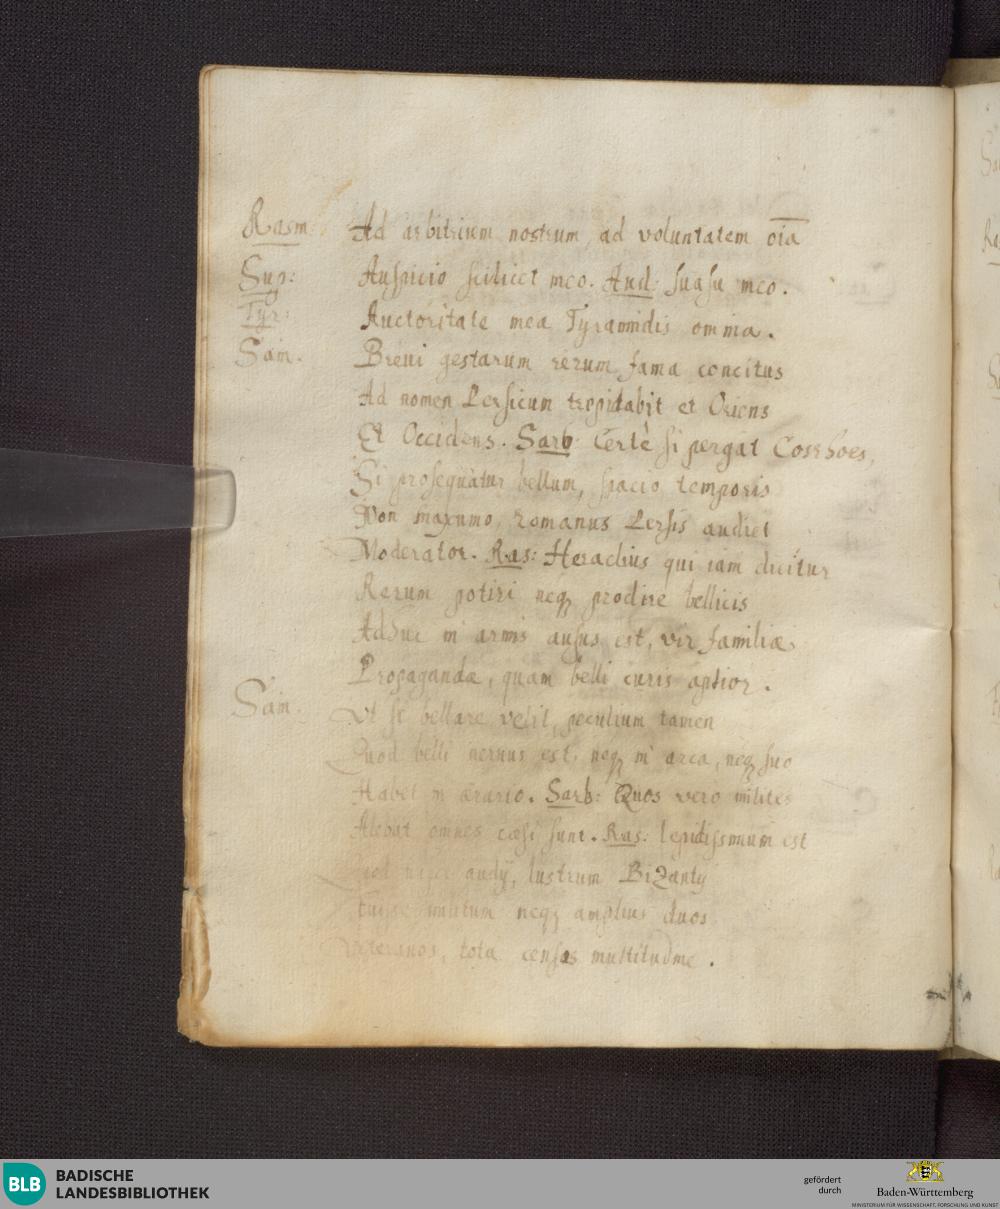 Rasm Ad arbitrium nostrum, ad voluntatem oīa
Sup: Auspicio scilicet meo. Aud: suasu meo.
Tyr: Auctoritate mea Tyrannidis omnia.
Sám. Breui gestarum rerum fama concitus
Ad nomen Persicum trepidabit et Oriens
Et Occidens. Sarb: Certè si pergat Cosrhoes,
Si prosequatur bellum, spacio temporis
Non maxumo, romanus Persis audiet
Moderator. Ras: Heraclius qui iam dicitur
Rerum potiri neq; prodire bellicis
Adhuc in armis ausus est, vir familiæ
Propagandæ, quam belli curis aptior.
Sám. Vt sit bellare velit, peculium tamen
Quod belli neruus est, neq; in arca, neq; suo
Habet in ærario. Sarb: Quos vero milites
Alebat omnes cæsi sunt. Ras: lepidissimum est
audij, lustrum Bizantij
neq; amplius duos
Veteranos, tota censos multitudine.
BLB BADISCHE
LANDESBIBLIOTHEK
gefördert
durch
Baden-Württemberg
MINISTERIUM FÜR WISSENSCHAFT, FORSCHUNG UND KUNST